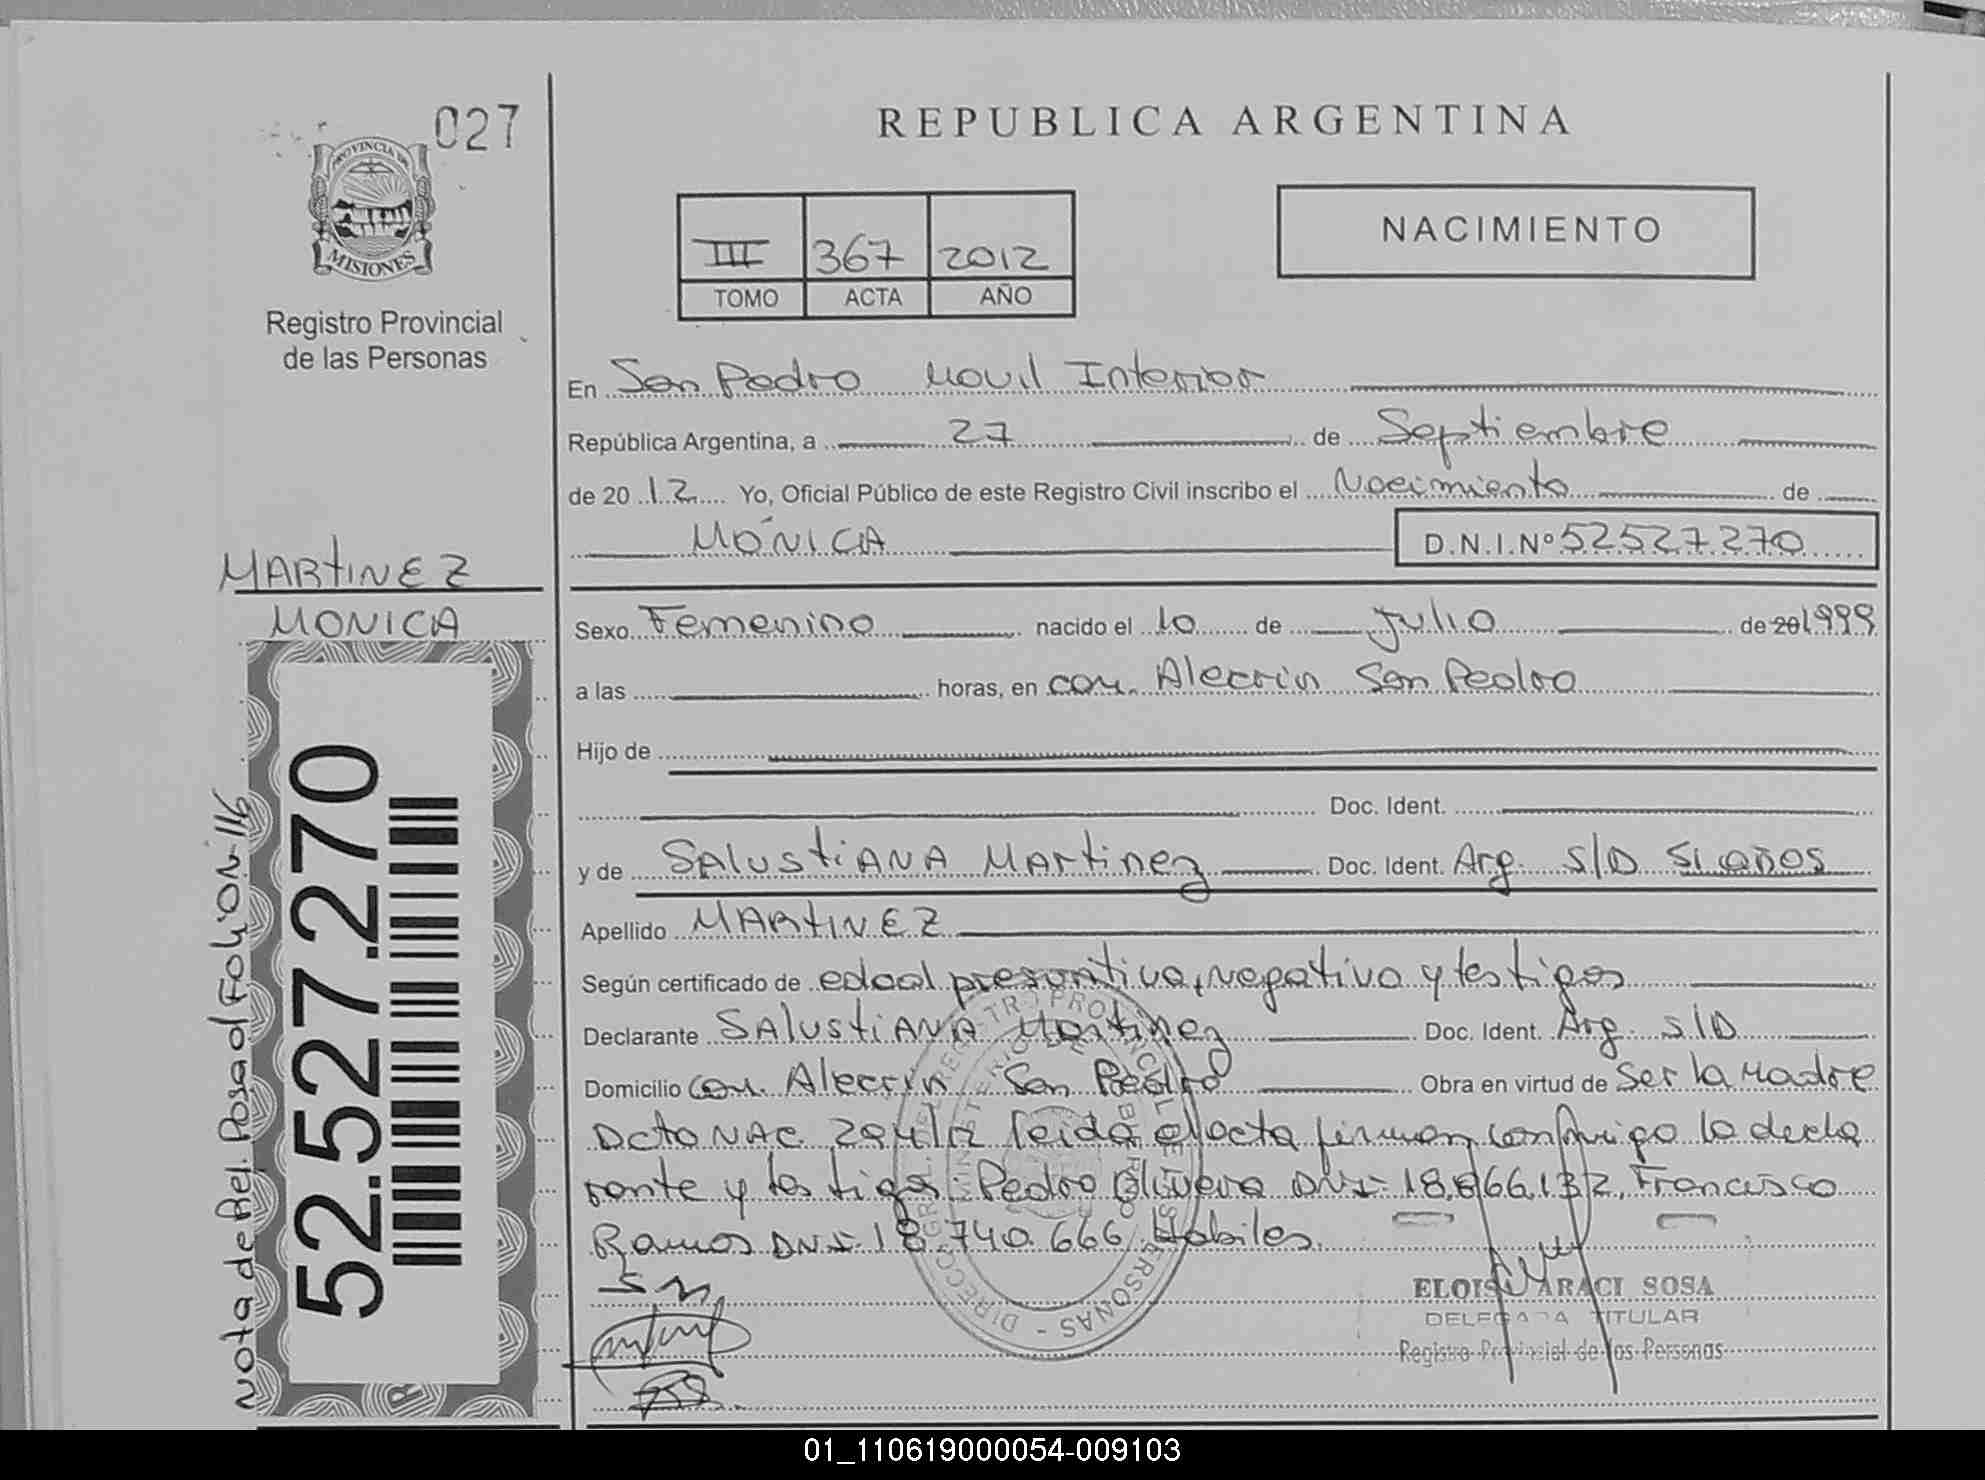 027
PROVINCIA DE
MISIONES
Registro Provincial
de las Personas
REPUBLICA ARGENTINA
III 367 2012
TOMO ACTA AÑO
NACIMIENTO
En San Pedro Movil Interior
República Argentina, a 27 de Septiembre
de 2012 Yo, Oficial Público de este Registro Civil inscribo el Nacimiento de
MÓNICA D.N.I.Nº 52527270
MARTINEZ
MONICA
Sexo Femenino nacido el 10 de Julio de 20 1999
a las horas, en com. Alecrin San Pedro
Hijo de
Doc. Ident.
y de SALUSTIANA MARTINEZ Doc. Ident. Arg. S/D 51 años
Apellido MARTINEZ
Según certificado de edad presuntiva, negativo y testigos
Declarante SALUSTIANA Martinez Doc. Ident. Arg. S/D
Domicilio Com. Alecrin San Pedro Obra en virtud de Ser la Madre
Dcto NAC. 294/12 leida el acta firman conmigo la decla
rante y testigos Pedro Olivera DNI 18.866.132, Francisco
Ramos DNI 18.740.666 Habiles.
S M
ELOISA ARACI SOSA
DELEGADA TITULAR
Registro Provincial de las Personas
52.527.270
Nota de Rel. Posad Folio Nº 116
01_110619000054-009103